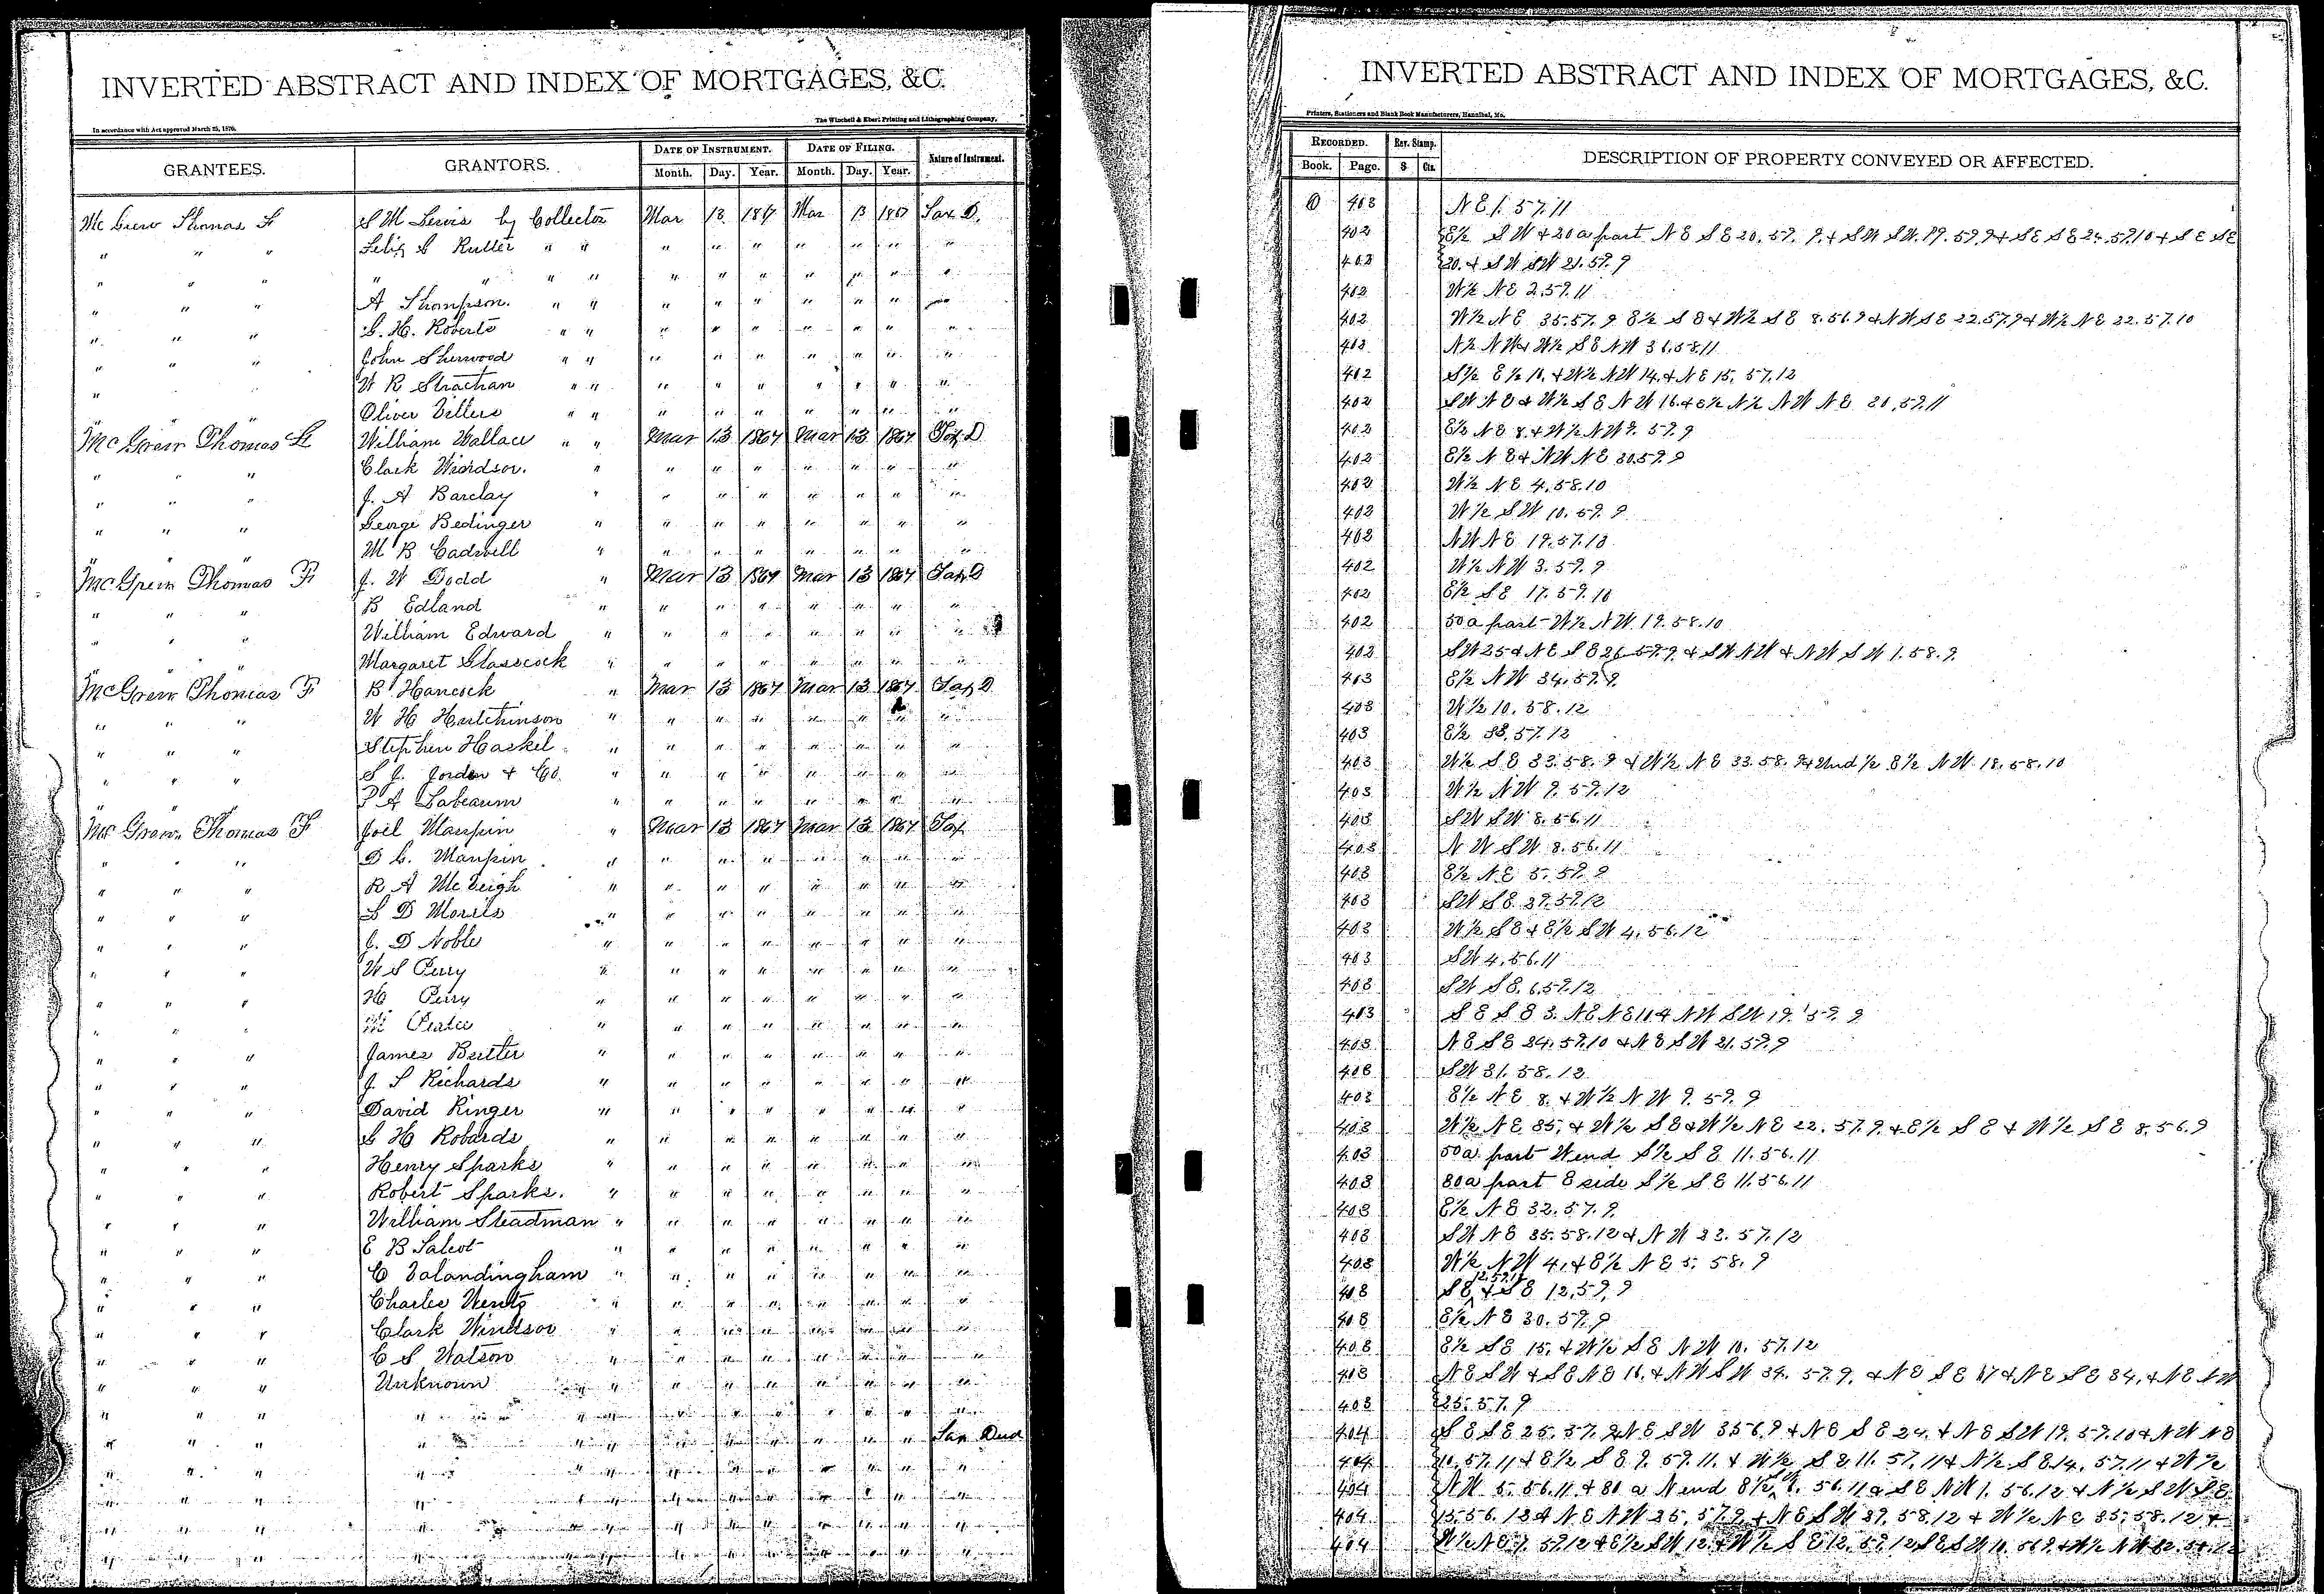 INVERTED ABSTRACT AND INDEX OF MORTGAGES, &C.
In accordance with Act approved March 25, 1870.
The Winchell & Ebert Printing and Lithographing Company,
GRANTEES. GRANTORS. DATE OF INSTRUMENT. DATE OF FILING. Nature of Instrument.
Month. Day. Year. Month. Day. Year.
Mc Grew Thomas F S M Lewis by Collector Mar 13 1867 Mar 13 1867 Tax D.
" " " Felix G Rutter " " " " " " " " "
" " " " " " " " " " " " " "
" " " A Thompson. " " " " " " " "
" " " G. H. Roberts " " " " " " " " "
" " " John Sherwood " " " " " " " " "
" W R Strachan " " " " " " " " "
" " " Oliver Villers " " " " " " " " "
McGrew Thomas F William Wallace " " Mar 13 1867 Mar 13 1867 Tax D
" " " Clark Windsor. " " " " " " " "
" " " J. A Barclay " " " " " " " "
" " " George Bedinger " " " " " " " "
" " " M B Cadwell " " " " " " " "
McGrew Thomas F J. W Dodd " Mar 13 1867 Mar 13 1867 Tax D
" " " B Edland " " " " " " " "
" " " William Edward " " " " " " " "
" " " Margaret Glasscock " " " " " " " "
McGrew Thomas F B Hancock " Mar 13 1867 Mar 13 1867 Tax D
" " " W H Hutchinson " " " " " " " "
" " " Stephen Haskil " " " " " " " "
" " " S J. Jordon & Co. " " " " " " " "
" " " P A Labeaum " " " " " " " "
Mc Grew Thomas F Joel Maupin " Mar 13 1867 Mar 13 1867 Tax
" " " D C. Maupin " " " " " " " "
" " " R A McVeigh " " " " " " " "
" " " L D Morris " " " " " " " "
" " " J. D Noble " " " " " " " "
" " " W S Perry " " " " " " " "
" " " H Perry " " " " " " " "
" " " " " " " " " " "
" " " James Butter " " " " " " " "
" " " J. S Richards " " " " " " " "
" " " David Ringer " " " " " " " "
" " " G H Robards " " " " " " " "
" " " Henry Sparks " " " " " " " "
" " " Robert Sparks. " " " " " " " "
" " " William Steadman " " " " " " " "
" " " E B Talbot " " " " " " " "
" " " C Valandingham " " " " " " " "
" " " Charles Wentz " " " " " " " "
" " " Clark Windsor " " " " " " " "
" " " C S Watson " " " " " " " "
" " " Unknown " " " " " " " " "
" " " " " " " " " " " " "
" " " " " " " " " " " " Tax Deed
" " " " " " " " " " " " "
" " " " " " " " " " " " "
" " " " " " " " " " " " "
" " " " " " " " " " " " "
INVERTED ABSTRACT AND INDEX OF MORTGAGES, &C.
Printers, Stationers and Blank Book Manufacturers, Hannibal, Mo.
RECORDED. Rev. Stamp. DESCRIPTION OF PROPERTY CONVEYED OR AFFECTED.
Book. Page. $ Cts.
O 403 N E 1. 57. 11
402 E½ S W & 20 a part N E S E 20. 59. 9. & S W S W. 19. 59. 9 & S E S E 24. 59. 10 & S E S E
402 20. & S W S W 21. 59. 9
402 W½ N E 2. 59. 11
402 W½ N E 35. 57. 9 E½ S E & W½ S E 8. 56. 9 & N W S E 22. 57. 9 & W½ N E 22. 57. 10
403 N½ N W & W½ S E N W 36. 58. 11
402 S½ E½ 10. & W½ N W 14. & N E 15. 57. 12
402 S W N E & W½ S E N W 16. & E½ N½ N W N E 20. 59. 11
402 E½ N E 8. & W½ N W 9. 59. 9
402 E½ N E & N W N E 30. 59. 9
402 W½ N E 4. 58. 10
402 W½ S W 10. 59. 9
402 N W N E 19. 57. 10
402 W½ N W 3. 59. 9
402 E½ S E 17. 59. 10
402 50 a part W½ N W 19. 58. 10
402 S W 25 & N E S E 26 59. 9. & S W N W & N W S W 1. 58. 9.
403 E½ N W 34. 59. 9.
403 W½ 10. 58. 12
403 E½ 33. 57. 12
403 W½ S E 33. 58. 9 & W½ N E 33. 58. 9 & Und ½ E½ N W 18. 58. 10
403 W½ N W 9. 59. 12
403 S W S W 8. 56. 11
403 N W S W 8. 56. 11
403 E½ N E 5. 59. 9
403 S W S E 29. 59. 12
403 W½ S E & E½ S W 4. 56. 12
403 S W 4. 56. 11
403 S W S E. 6. 59. 12
403 S E S E 3. N E N E 11 & N W S W 19. 59. 9
403 N E S E 24. 59. 10 & N E S W 21. 59. 9
403 S W 31. 58. 12
403 E½ N E 8. & W½ N W 9. 59. 9
403 W½ N E 35. & W½ S E & W½ N E 22. 57. 9. & E½ S E & W½ S E 8. 56. 9
403 50 a part W end S½ S E 11. 56. 11
403 80 a part E side S½ S E 11. 56. 11
403 E½ N E 32. 57. 9
403 S W N E 35. 58. 12 & N W 23. 57. 12
403 W½ N W 4. & E½ N E 5. 58. 9
403 S E & S E 12. 59. 9
403 E½ N E 30. 59. 9
403 E½ S E 15. & W½ S E N W 10. 57. 12
403 N E S W & S E N E 16. & N W S W 34. 57. 9. & N E S E 17 & N E S E 34. & N E N W
403 25. 57. 9
404 S E S E 25. 57. 9 N E S W 3. 56. 9 & N E S E 24. & N E S W 19. 59. 10 & N W N E
404 10. 57. 11 & E½ S E 9. 59. 11. & W½ S E 11. 57. 11 & N½ S E 14. 57. 11 & W½
404 N W 5. 56. 11. & 80 a N end E½ 6. 56. 11 & S E N W 1. 56. 12 & N½ S W S E
404 15. 56. 12 & N E N W 25. 57. 9. & N E S W 29. 58. 12 & W½ N E 35. 58. 12 &
404 W½ N E 1. 59. 12 & E½ S W 12. & W½ S E 12. 59. 12 S E S W 10. 56. 9. & W½ N W 32.